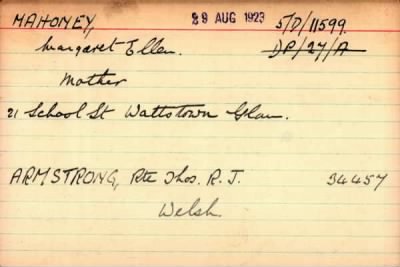 MAHONEY, 29 AUG 1923 5/D/11599.
Margaret Ellen. DP/27/A
Mother
21 School St Wattstown Glam.
ARMSTRONG, Pte Thos. R. J. 34457
Welsh.